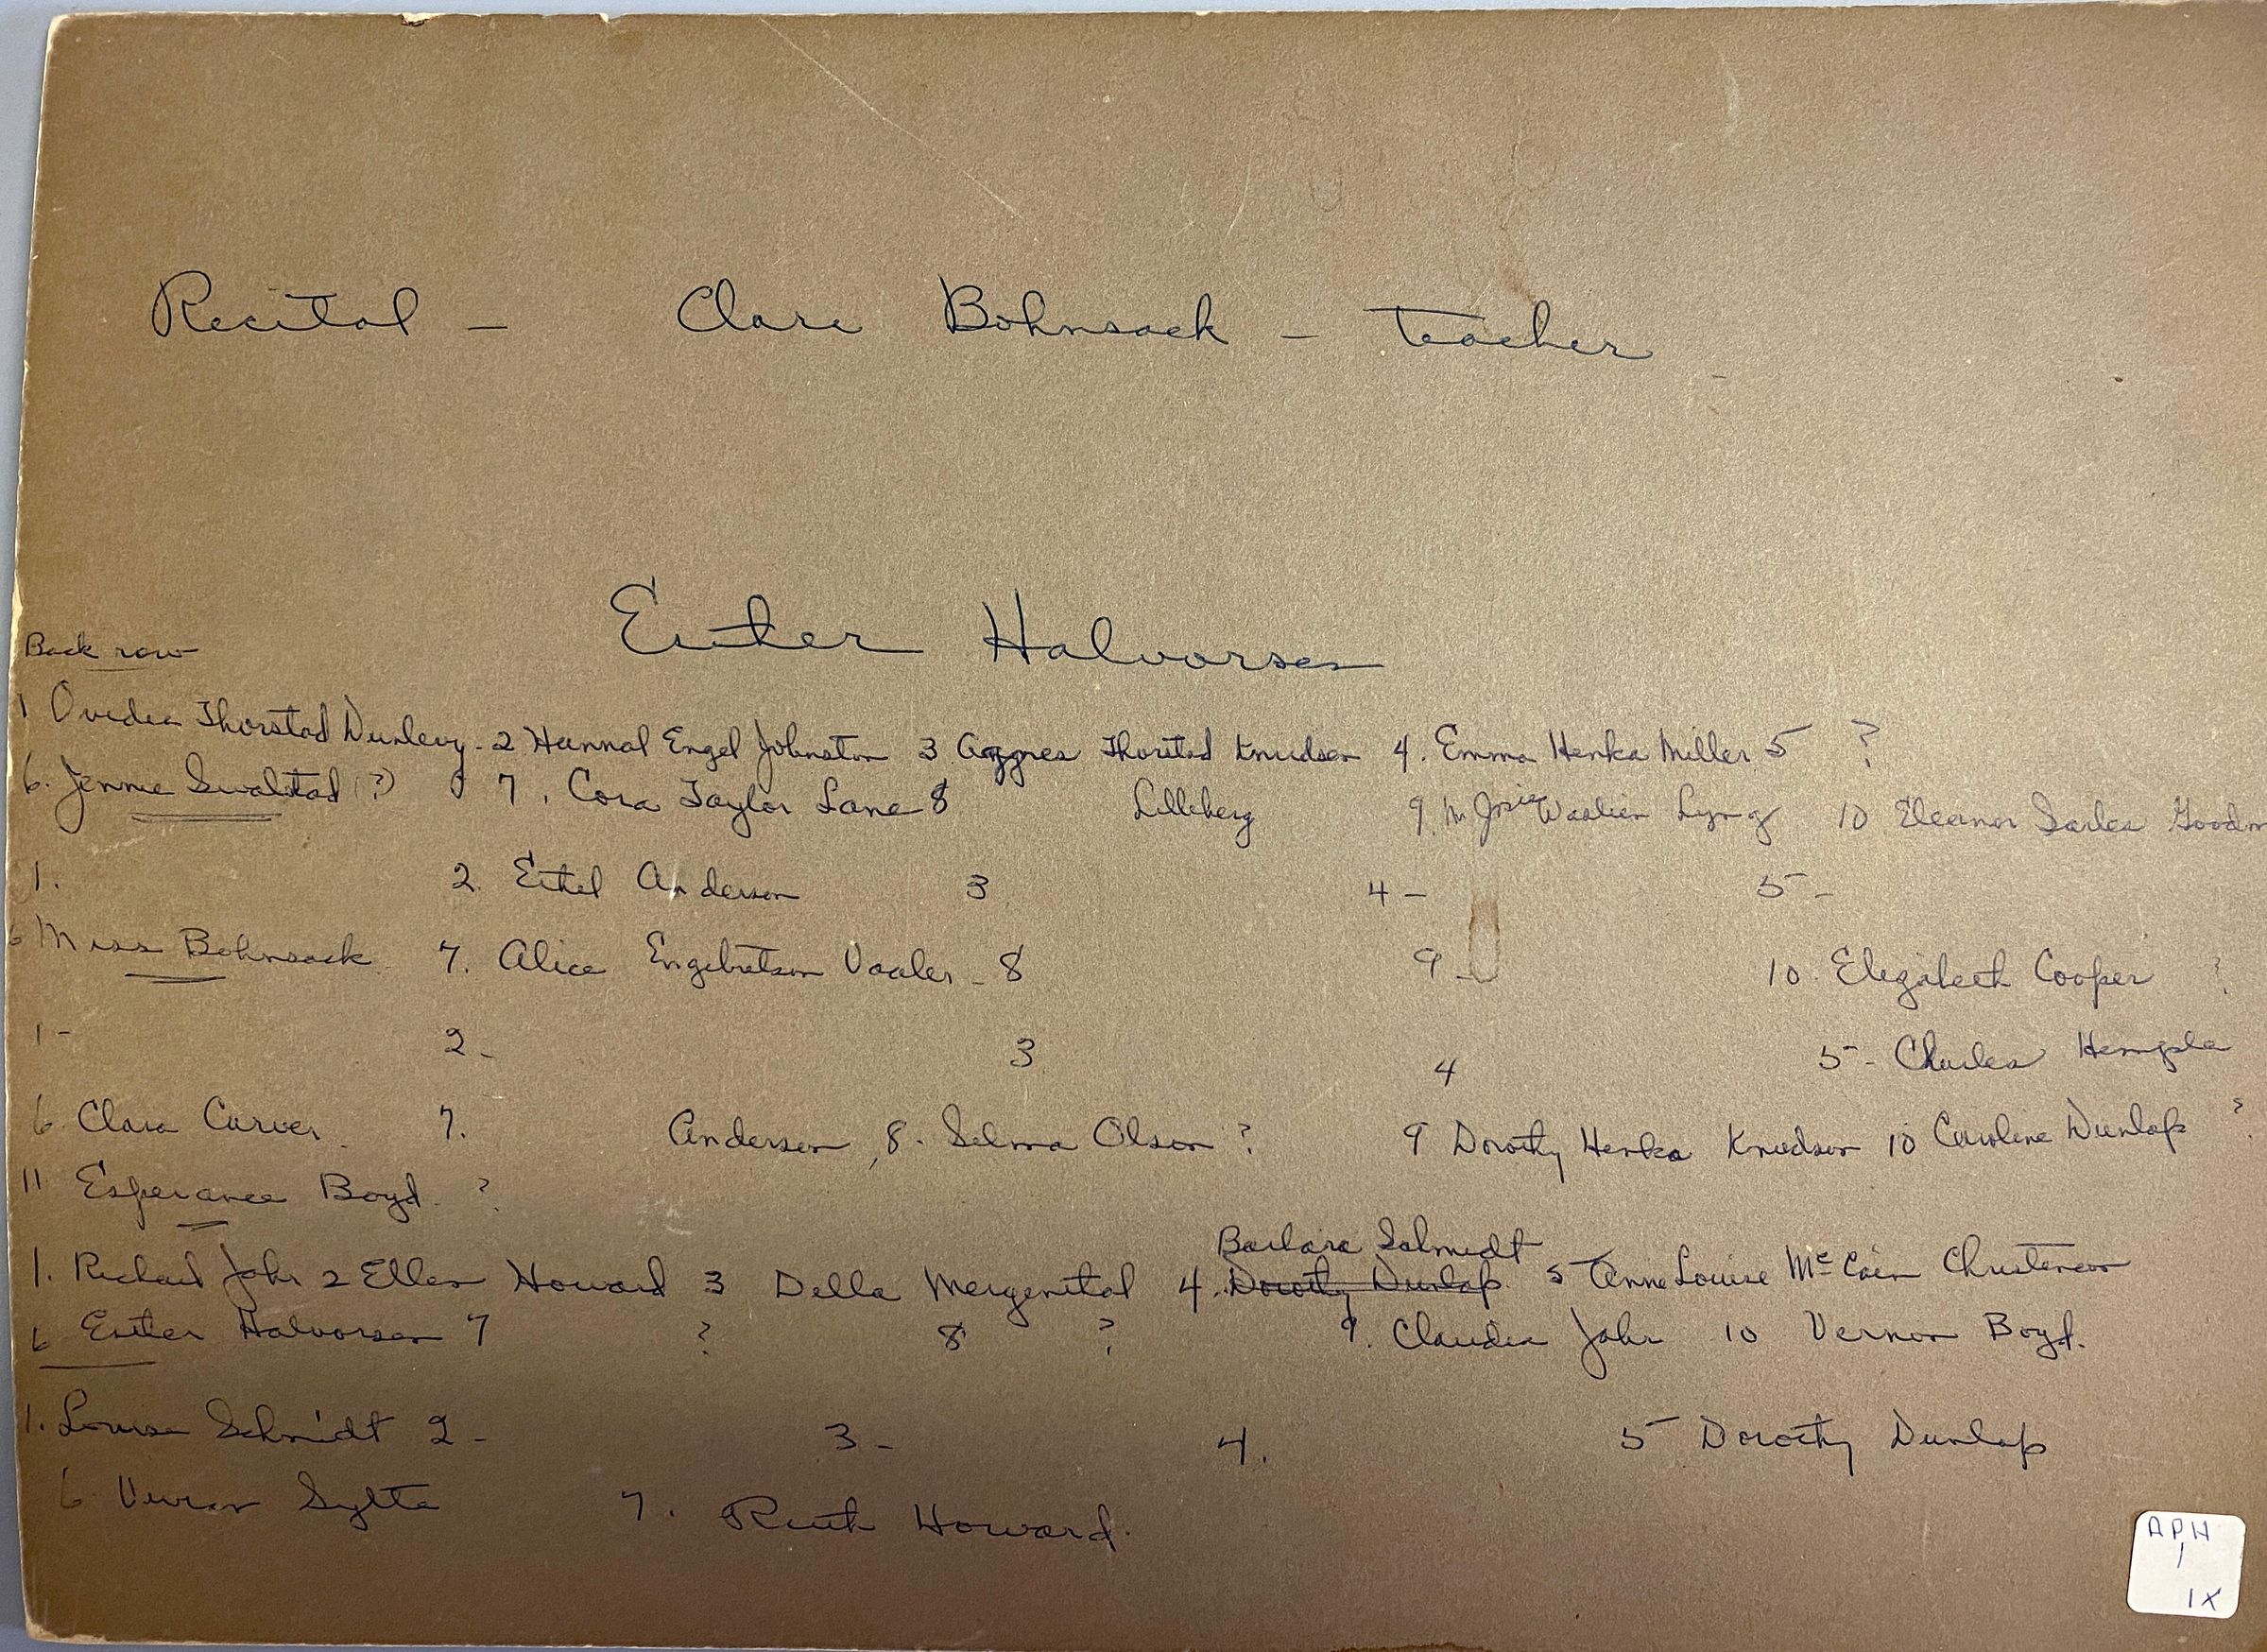 Recital - Clare Bohnsack - teacher
Esther Halvorsen
Back row
1 Ovedia Thorstad Dunlevy - 2 Hannah Engel Johnston 3 Agnes Thorstad Knudsen 4. Emma Henka Miller 5 ?
6. Jennie Swalstad (?) 7. Cora Taylor Lane 8 Lilleberg 9. Josie Waalien Lyng 10 Eleanor Sarles Goodm
1. 2. Ethel Anderson 3 4 - 5 -
6 Miss Bohnsack 7. Alice Engebretson Vaaler - 8 9 - 10. Elizabeth Cooper ?
1 - 2 - 3 4 5 - Charles Hemple
6. Clara Carver 7. Anderson, 8. Selma Olson ? 9 Dorothy Henka Knudson 10 Caroline Dunlap ?
11 Esperance Boyd ?
Barbara Schmidt
1. Richard Jahr 2 Ellen Howard 3 Della Mergenthal 4. Dorothy Dunlap 5 Anne Louise McCain Christenson
6 Esther Halvorsen 7 ? 8 ? 9. Claudia Jahr 10 Vernon Boyd.
1. Louise Schmidt 2 - 3 - 4. 5 Dorothy Dunlap
6 Vivian Sylte 7. Ruth Howard.
APH
1
1X